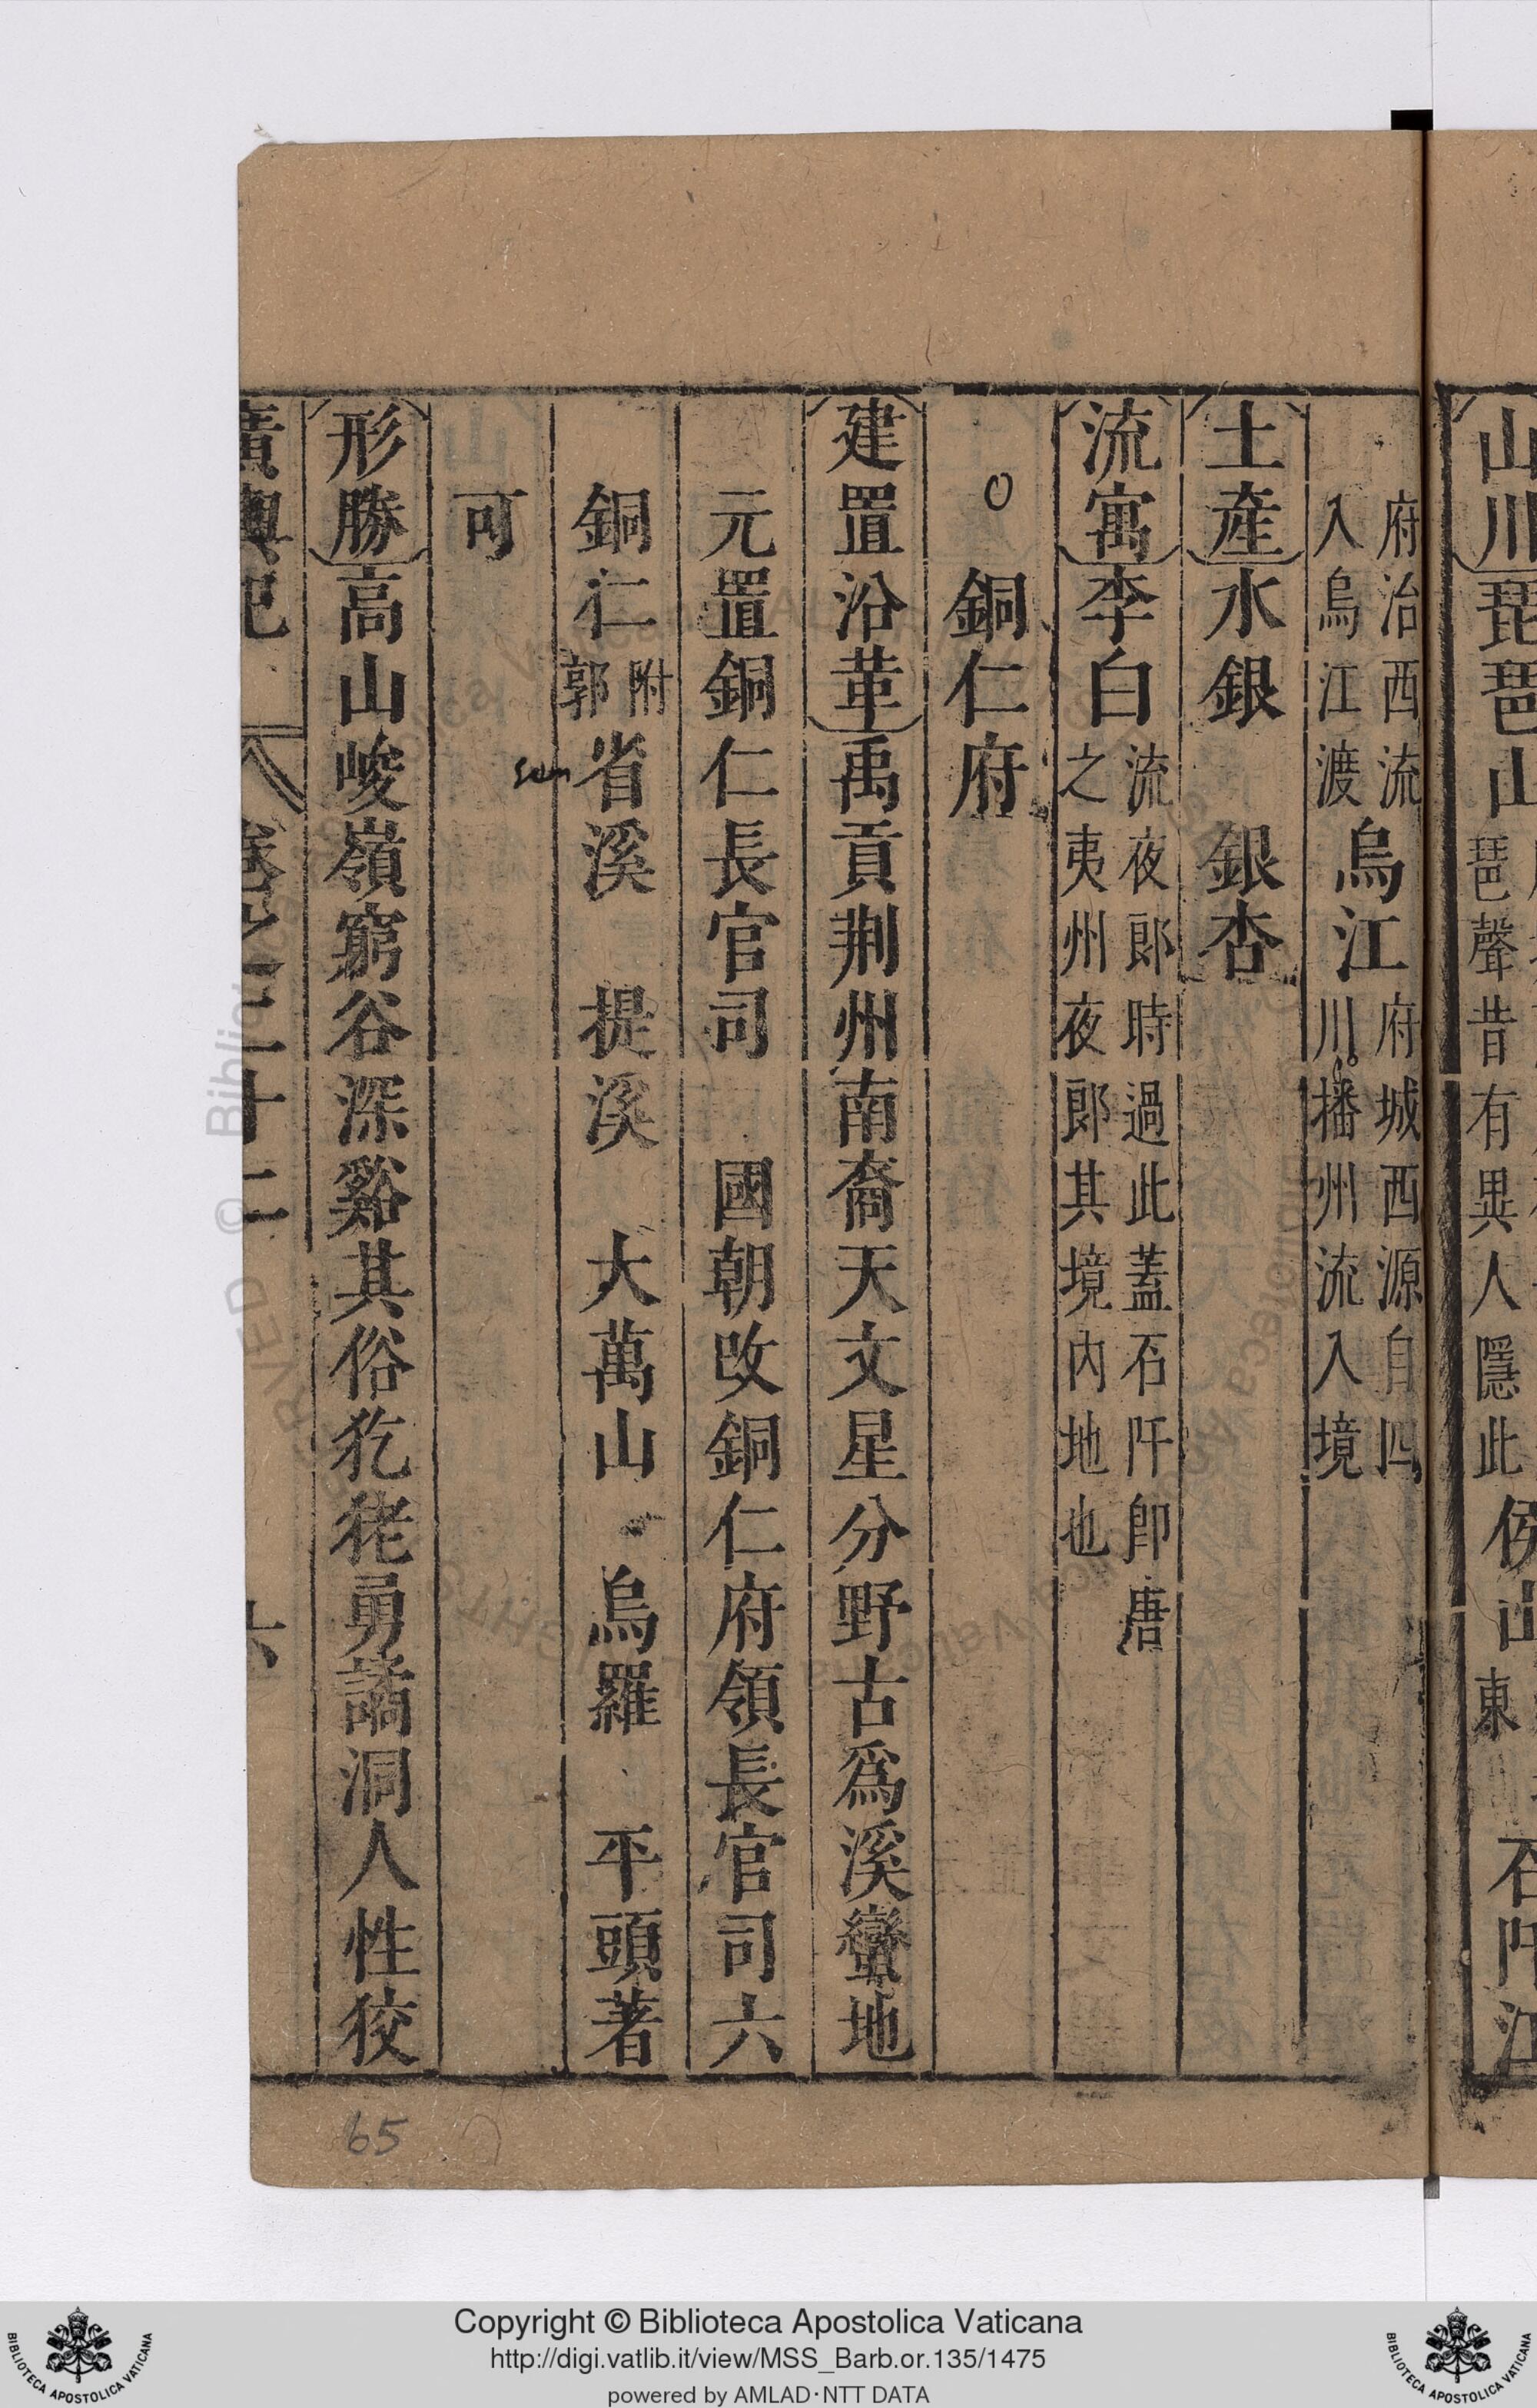 山川琵琶山
琶聲昔有異人隱此
侯山
東
石阡江
府治西流
入烏江渡
烏江
府城西源自四
川播州流入境
土產水銀 銀杏
流寓李白
流夜郎時過此蓋石阡卽唐
之夷州夜郎其境內地也
銅仁府
建置沿革禹貢荆州南裔天文星分野古爲溪蠻地
元置銅仁長官司 國朝改銅仁府領長官司六
銅仁
附
郭
省溪 提溪 大萬山 烏羅 平頭著
sem
可
形勝高山峻嶺窮谷深谿其俗犵狫勇譎洞人性狡
廣輿記 卷之二十二 六
65
Copyright © Biblioteca Apostolica Vaticana
http://digi.vatlib.it/view/MSS_Barb.or.135/1475
powered by AMLAD·NTT DATA
BIBLIOTECA APOSTOLICA VATICANA
BIBLIOTECA APOSTOLICA VATICANA